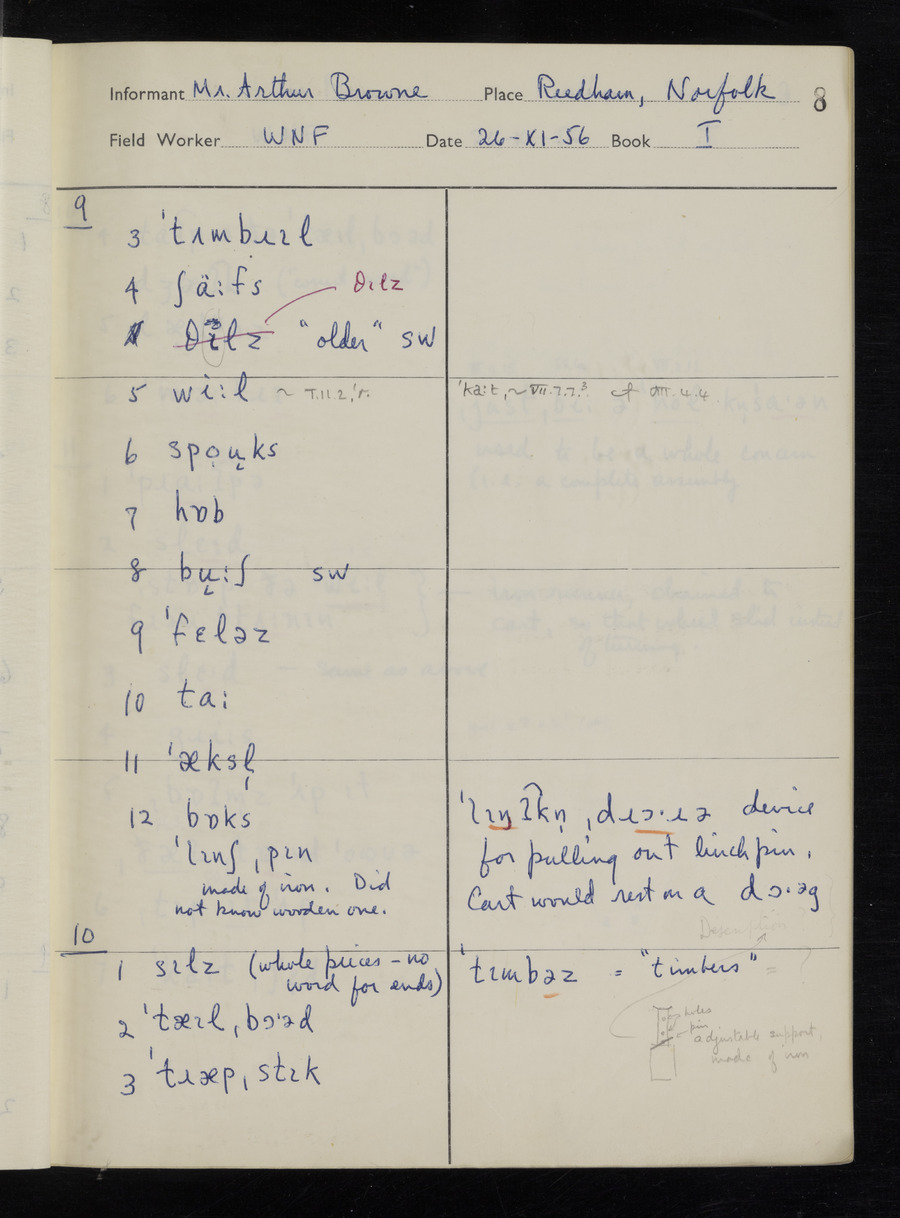 Informant Mr. Arthur Browne Place Reedham, Norfolk 8
Field Worker WNF Date 26-XI-56 Book I
9
3 ˈtɪmbɪɪl
4 ʃäːfs
ðɪlz
"older" sw
5 wiːl ~
ˈkaːt, ~ VII.7.7.³ cf VIII.4.4
6 spo̜u̜ks
7 hɒb
8 bu̜ːʃ sw
9 ˈfɛləz
10 taː
11 ˈæksl̩
12 ˈbɒks
device
for pulling out linchpin.
Cart would rest on a dɔ·əg
ˈlɪnʃˌpɪn
made of iron. Did
not know wooden one.
Description
10
1 sɪlz (whole pieces – no
word for ends)
ˈtɪmbəz = "timbers" = ?
2 ˈtæɪlˌbɔ·əd
3 ˈtɹæpˌstɪk
holes
pin
adjustable support,
made of iron